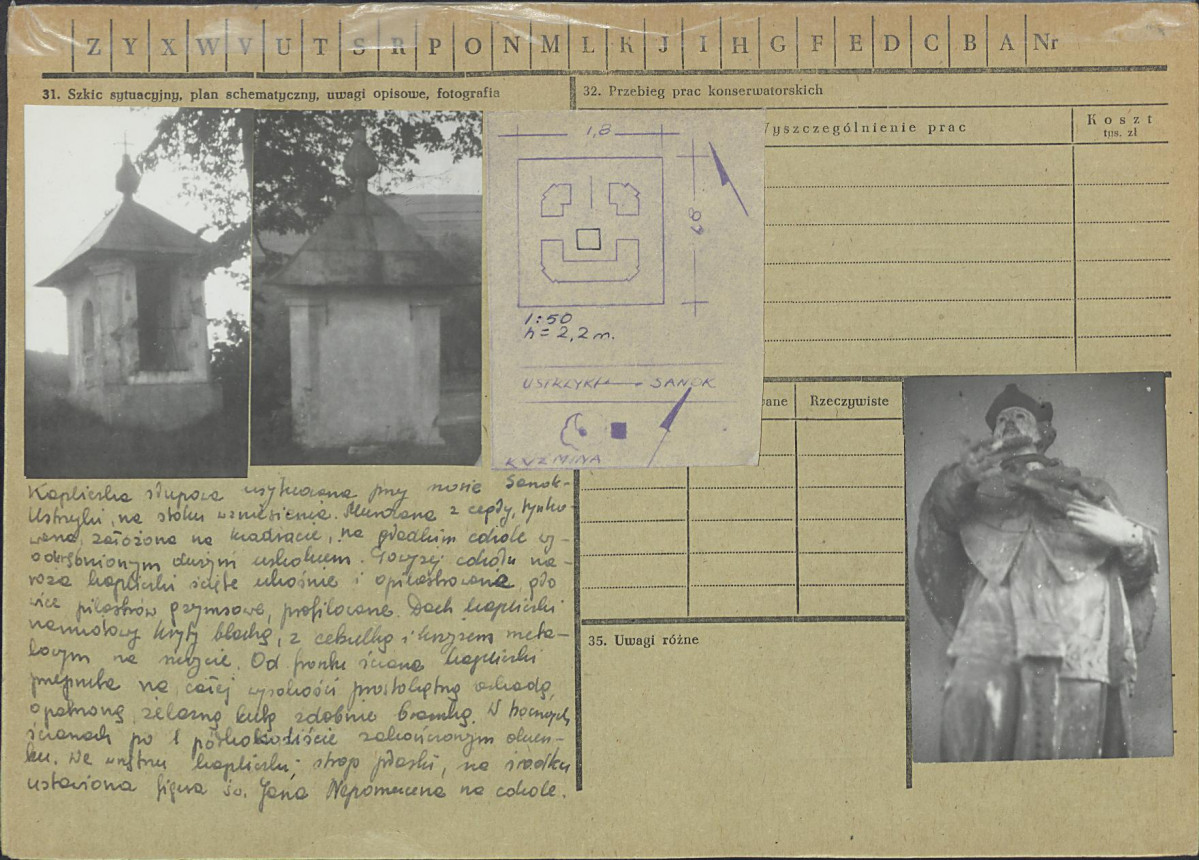 Z Y X W V U T S R P O N M L K J I H G F E D C B A Nr
31. Szkic sytuacyjny, plan schematyczny, uwagi opisowe, fotografia
32. Przebieg prac konserwatorskich
yszczególnienie prac
Koszt
tys. zł
1,8
1:50
h = 2,2 m.
USTRZYKI SANOK
KUZMINA
ane
Rzeczywiste
Kapliczka słupowa usytuowana przy szosie Sanok-
Ustrzyki, na stoku wzniesienia. Murowana z cegły, tynko-
wana, założona na kwadracie, na gładkim cokole wy-
odrębnionym dużym uskokiem. Powyżej cokołu na-
roża kapliczki ścięte ukośnie i opilastrowane, gło
wice pilastrów gzymsowe, profilowane. Dach kapliczki
namiotowy kryty blachą, z cebulką i krzyżem meta-
lowym na szczycie. Od frontu ściana kapliczki
przepruta na całej wysokości prostokątną
opatrzoną żelazną kutą zdobnie bramką. W bocznych
ścianach po 1 półkoliście zakończonym okien-
ku. We wnętrzu kapliczki, strop płaski, na środku
ustawiona figura św. Jana Nepomucena na cokole.
35. Uwagi różne